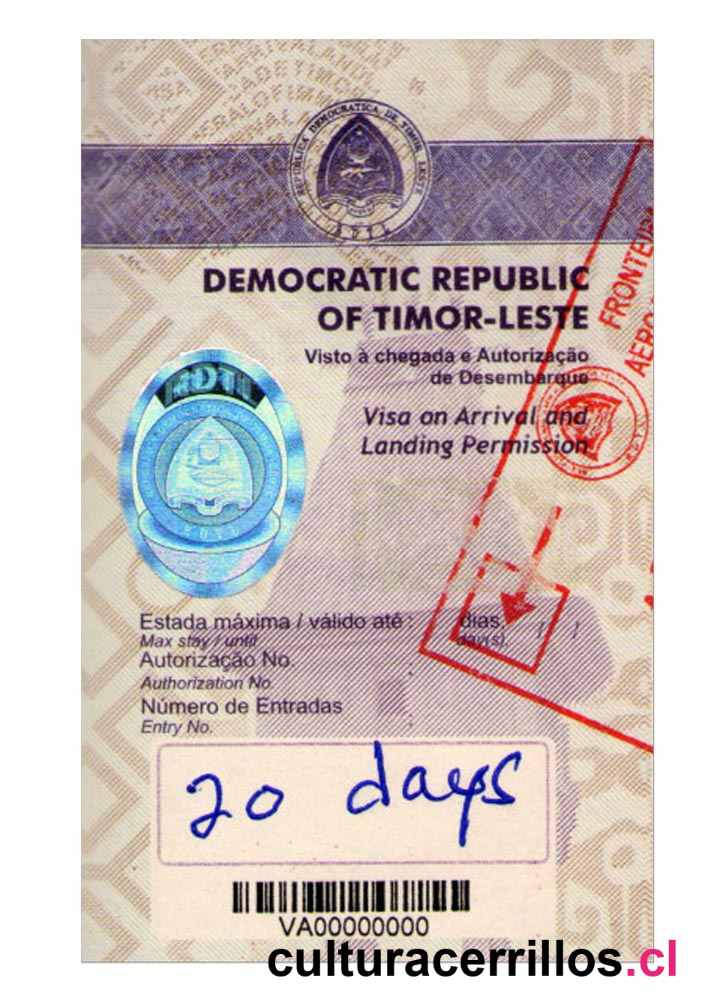 REPÚBLICA DEMOCRATICA DE TIMOR LESTE
RDTL
DEMOCRATIC REPUBLIC
OF TIMOR-LESTE
Visto à chegada e Autorização
de Desembarque
Visa on Arrival and
Landing Permission
FRONTEIRA
AERO
RDTL
RDTL
Estada máxima / válido até : dias, / /
Max stay / until day(s),
Autorização No. :
Authorization No.
Número de Entradas :
Entry No.
20 days
VA00000000
culturacerrillos.cl